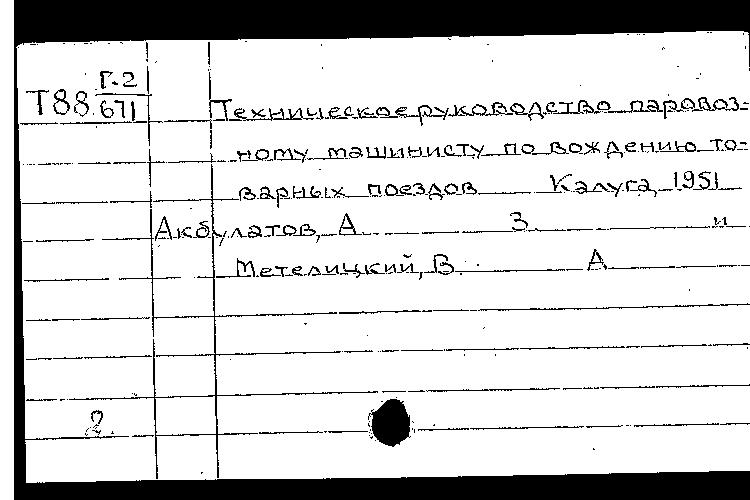 Т88 Г-2/671
Техническое руководство паровоз-
ному машинисту по вождению то-
варных поездов Калуга, 1951
Акбулатов, А. З. и
Метелицкий, В. А.
2.